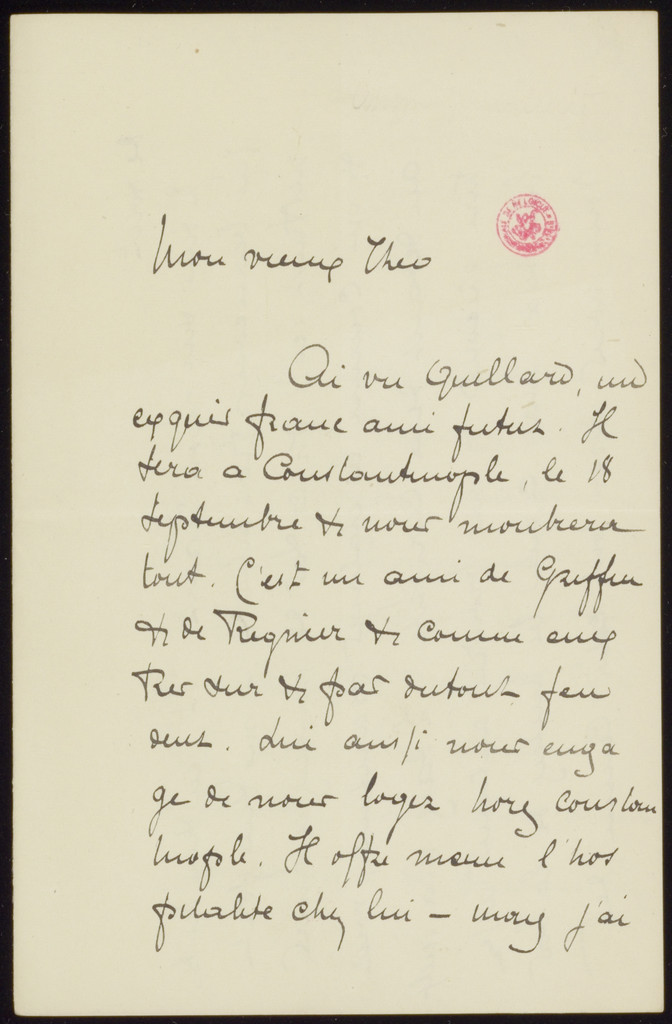 Mon vieux Theo
Ai vu Quillard, un
exquis franc ami futur. Il
sera a Constantinople, le 18
septembre & nous montrera
tout. C'est un ami de Griffin
& de Regnier & comme eux
tres sur & pas dutout feu
dent. Lui aussi nous enga
ge de nous loger hors Constan
tinople. Il offre meme l'hos
pitalite chez lui – mais j'ai